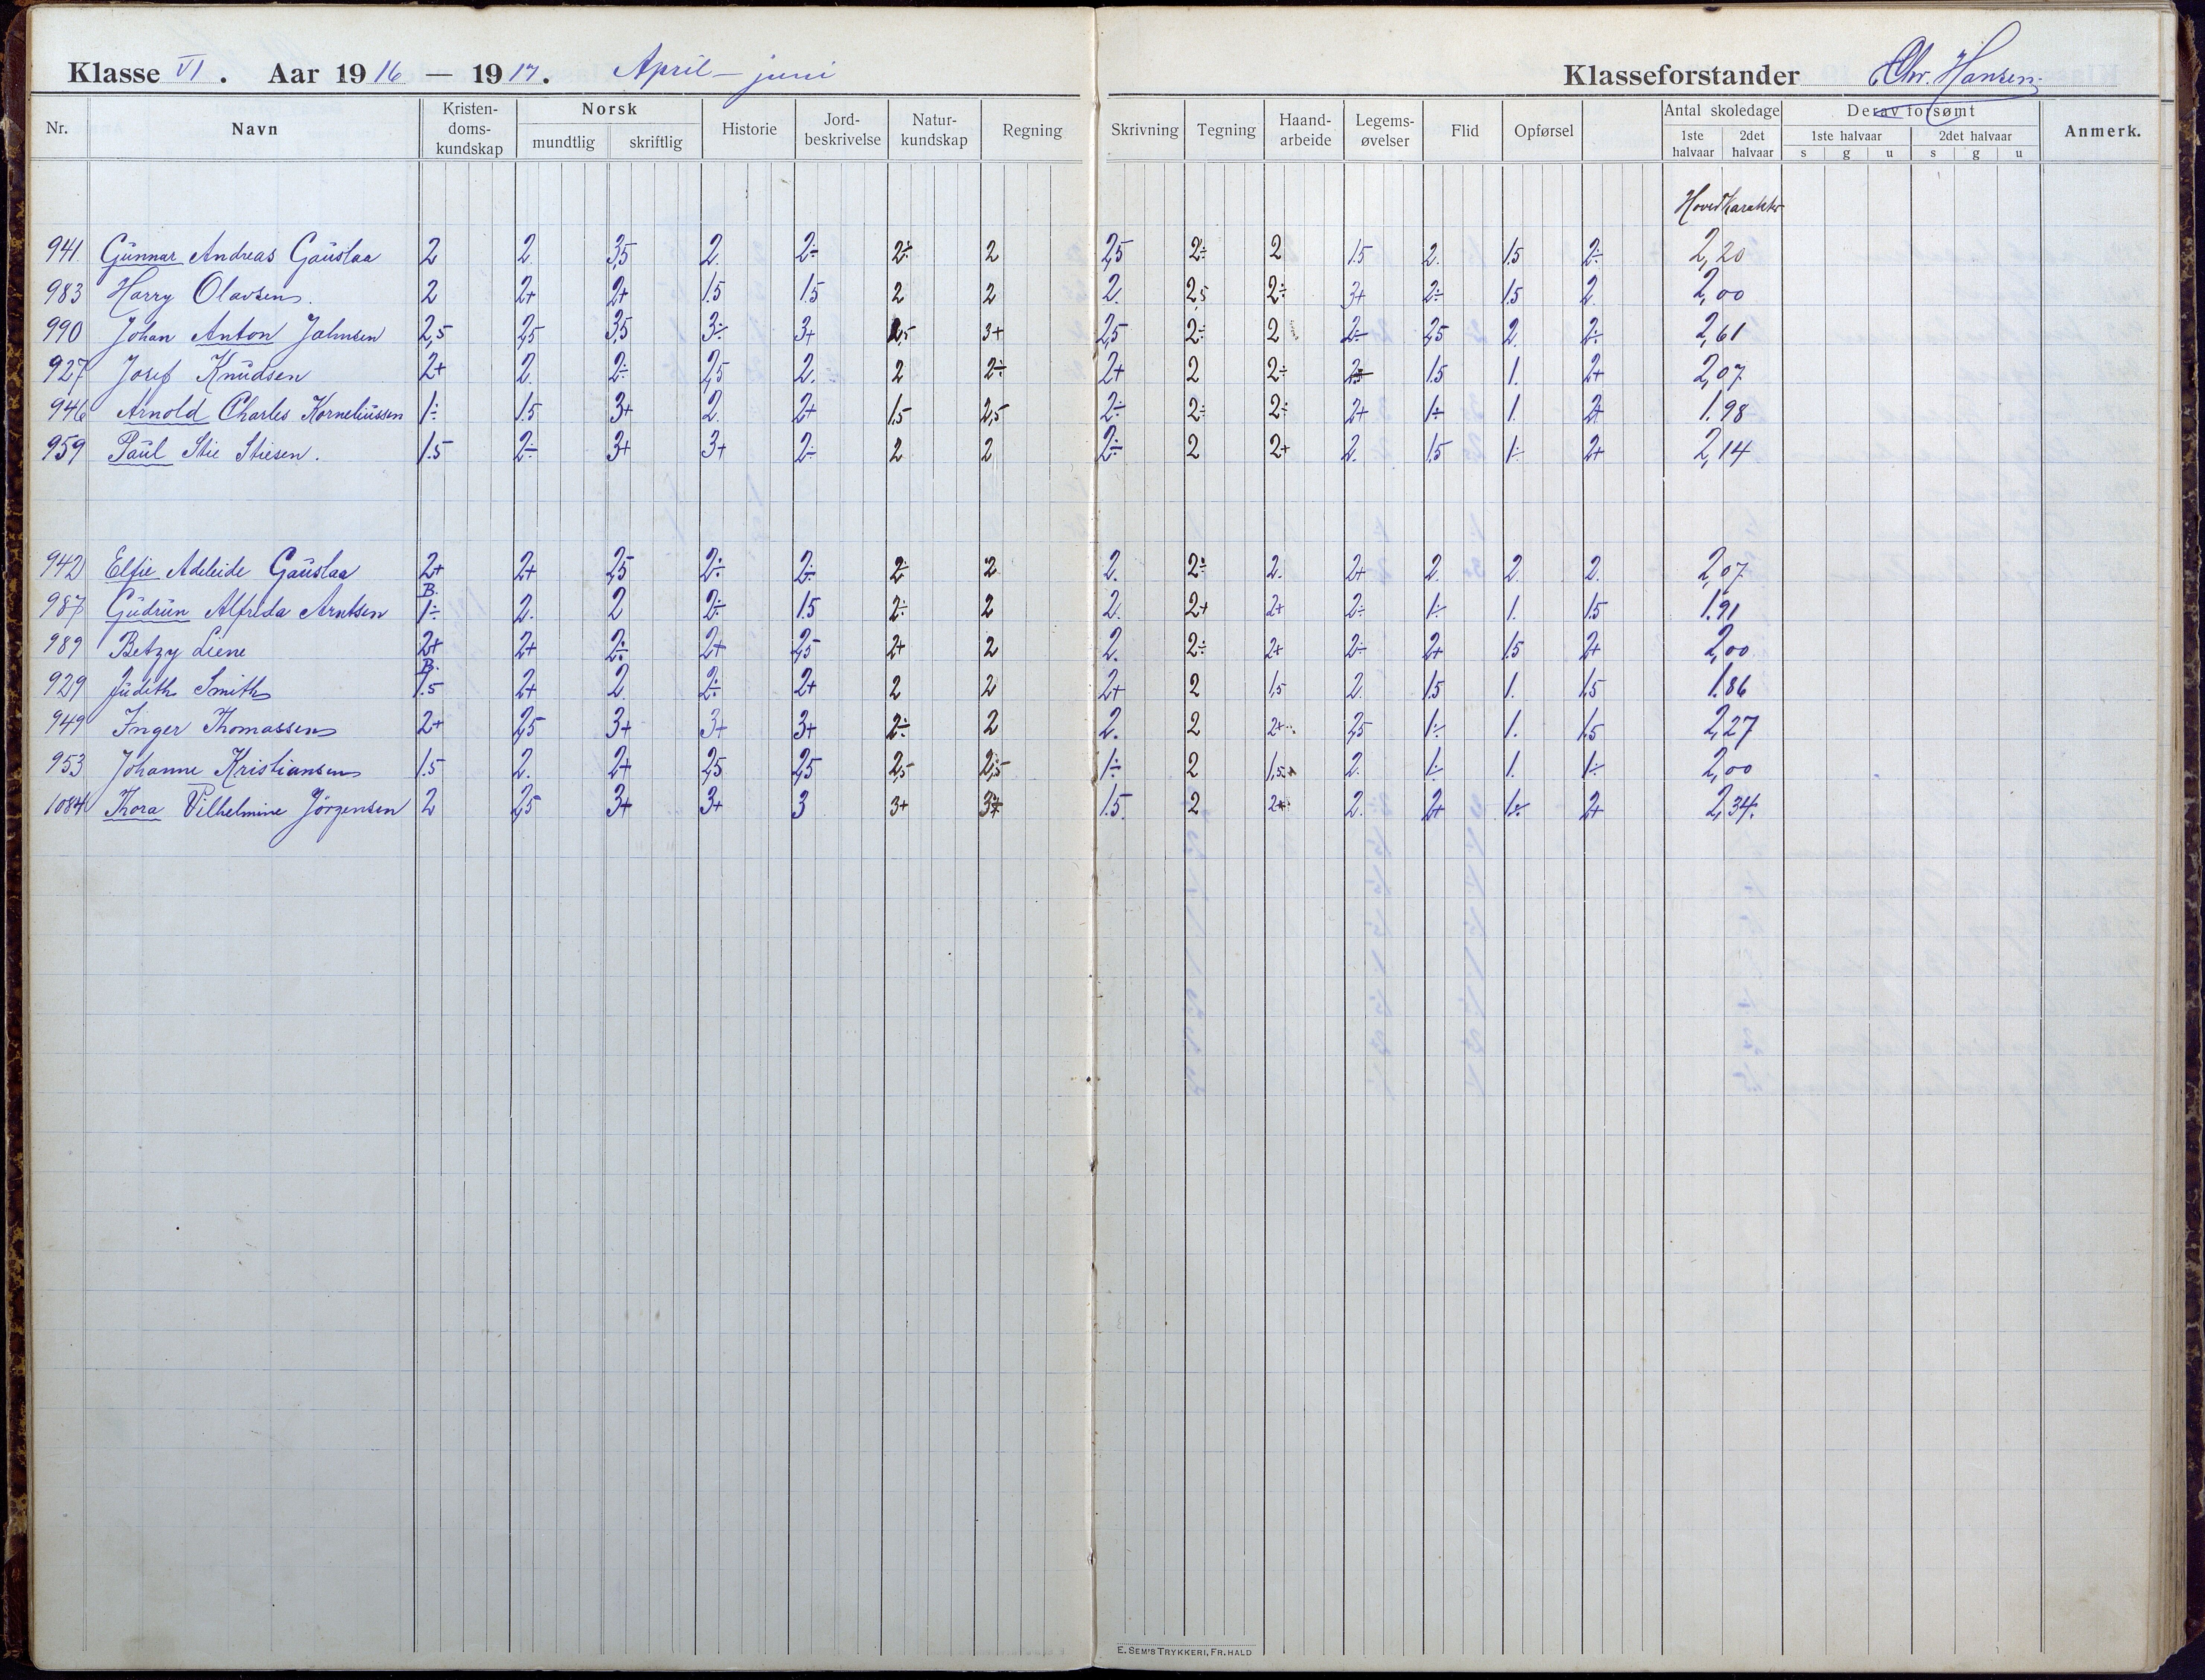 Klasse VI. Aar 1916 — 1917. April – juni Klasseforstander Chr. Hansen.
Nr. Navn Kristendomskundskap Norsk mundtlig skriftlig Historie Jordbeskrivelse Naturkundskap Regning Skrivning Tegning Haandarbeide Legemsøvelser Flid Opførsel Antal skoledage 1ste halvaar 2det halvaar Derav forsømt 1ste halvaar s g u 2det halvaar s g u Anmerk.
Hovedkarakter
941 Gunnar Andreas Gauslaa 2 2. 3,5 2. 2÷ 2÷ 2 2,5 2÷ 2 1.5 2. 1.5 2÷ 2,20
983 Harry Olavsen. 2 2+ 2+ 1.5 1.5 2 2 2. 2,5 2÷ 3+ 2÷ 1.5 2. 2,00
990 Johan Anton Jahnsen 2,5 2,5 3,5 3÷ 3+ 2,5 3+ 2,5 2÷ 2 2÷ 2,5 2. 2÷ 2,61
927 Josef Knudsen 2+ 2. 2÷ 2,5 2. 2 2÷ 2+ 2 2÷ 1.5 1. 2+ 2,07
946 Arnold Charles Korneliussen 1÷ 1.5 3+ 2. 2+ 1,5 2,5 2÷ 2÷ 2÷ 2+ 1÷ 1. 2+ 1.98
959 Paul Stie Stiesen. 1.5 2÷ 3+ 3+ 2÷ 2 2 2÷ 2 2+ 2. 1.5 1÷ 2+ 2,14
942 Elfie Adeleide Gauslaa 2+ 2+ 2,5 2÷ 2÷ 2÷ 2 2. 2÷ 2. 2+ 2. 2. 2. 2,07
B.
987 Gudrun Alfreda Arntsen 1÷ 2. 2 2÷ 1.5 2÷ 2 2. 2+ 2+ 2÷ 1÷ 1. 1.5 1.91
989 Betzy Liene 2+ 2+ 2÷ 2+ 2,5 2+ 2 2. 2÷ 2+ 2÷ 2+ 1.5 2+ 2,00
B.
929 Judith Smith 1.5 2+ 2 2÷ 2+ 2 2 2+ 2 1,5 2. 1.5 1. 1.5 1.86
949 Inger Thomassen 2+ 2,5 3+ 3+ 3+ 2÷ 2 2. 2 2+ 2,5 1÷ 1. 1.5 2,27
953 Johanne Kristiansen 1.5 2. 2+ 2,5 2,5 2,5 2,5 1÷ 2 1,5 2. 1÷ 1. 1÷ 2,00
1084 Thora Vilhelmine Jörgensen 2 2,5 3+ 3+ 3 3+ 1.5. 2 2+ 2. 2+ 1÷ 2+ 2,34.
E. SEM'S TRYKKERI, FR.HALD